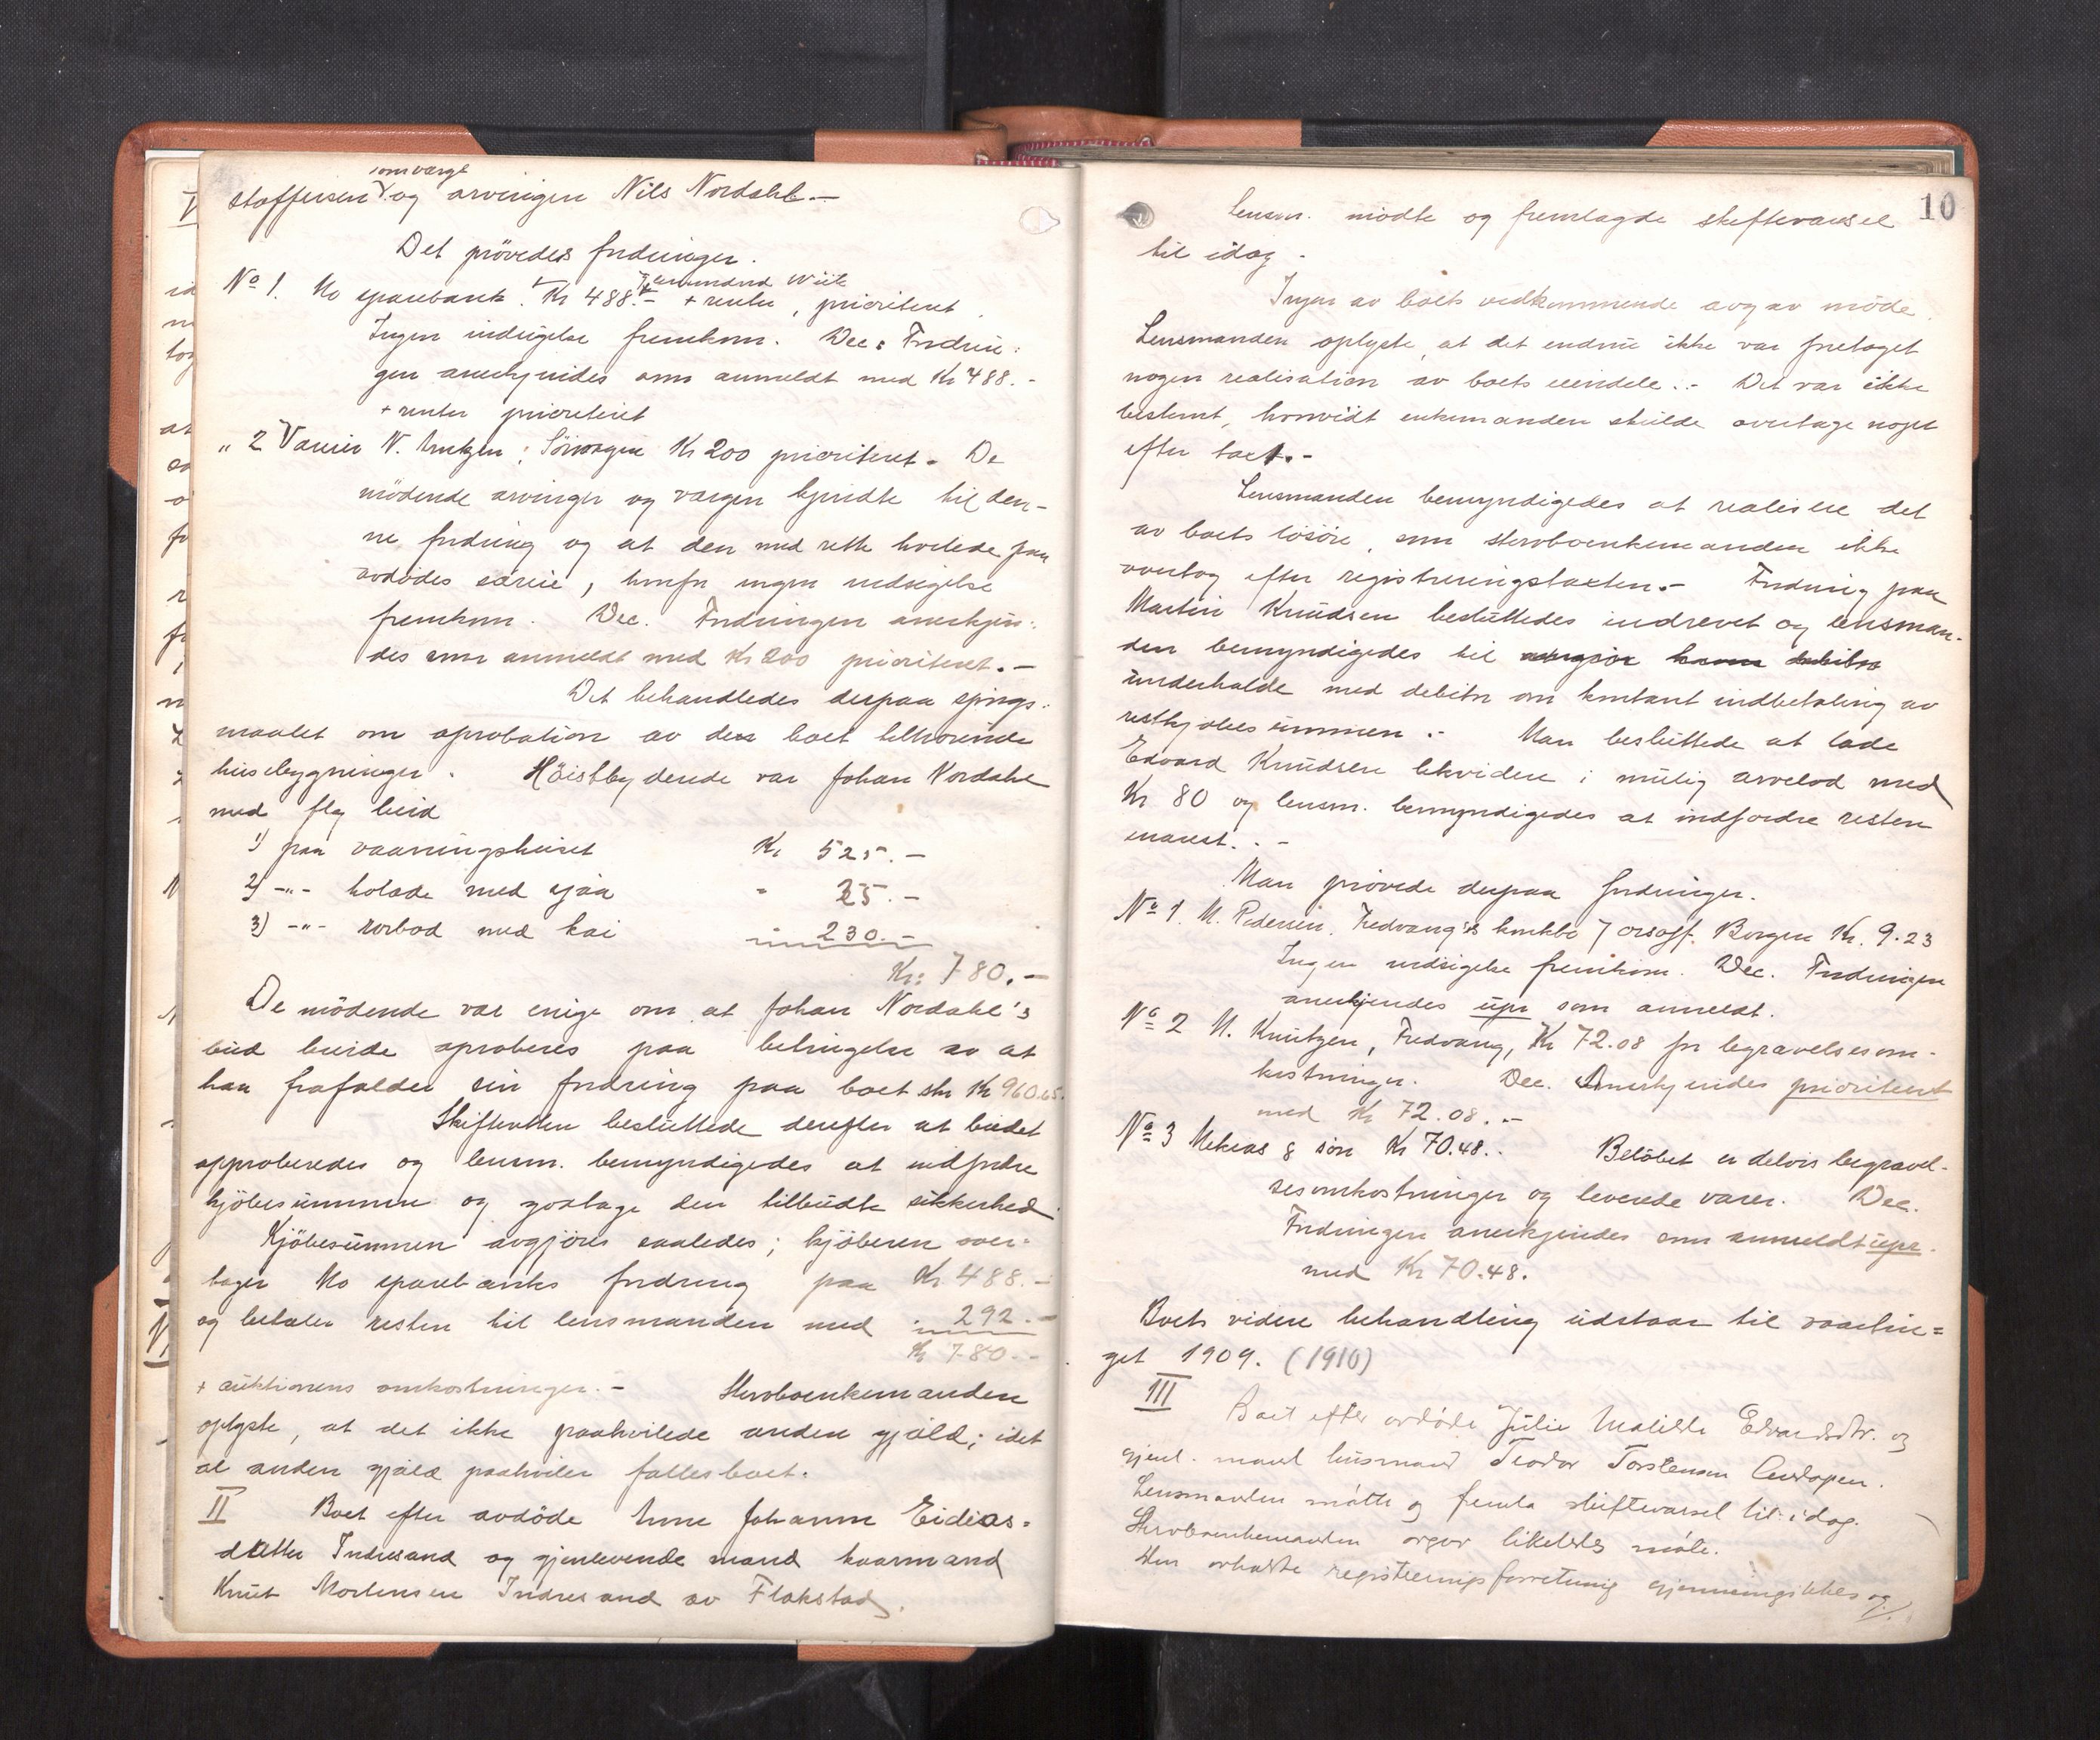 som værge
stoffersen og arvingen Nils Nordahl.-
Det prövedes fordringer.
No 1. Mo sparebank. Kr 488.- + renter, prioritert
Ingen indsigelse fremkom. Dec: Fordrin:
gen anerkjendes som anmeldt med Kr 488.-
+ renter prioriteret
„ 2 N. Sörvaagen Kr 200 prioriteret. De
mödende arvinger og værgen kjendte til den-
ne fordring og at den med rette hvilede paa
avdödes særeie, hvorfor ingen indsigelse
fremkom. Dec. Fordringen anerkjen:
des som anmeldt med Kr 200 prioriteret.-
Det behandledes derpaa spörgs:
maalet om aprobation av de boet tilhörende
husebygninger. Höistbydende var Johan Nordahl
med flg bud
1) paa vaaningshuset Kr 525.-
2) -"- kolade med sjaa " 25.-
3) -"- rorbod med kai " 230.-
Kr: 780.-
De mödende var enige om at Johan Nordahl's
bud burde aproberes paa betingelse av at
han frafalder sin fordring paa boet str Kr 960.65.
Skifteretten besluttede derefter at budet
approberedes og lensm. bemyndigedes at indfordre
kjöbesummen og godtage den tilbudte sikkerhed.
Kjöbesummen avgjöres saaledes; kjöberen over-
tager Mo sparebanks fordring paa Kr 488.-
og betaler resten til lensmanden med " 292.-
Kr 780.-
+ auktionens omkostninger.- Stervboenkemanden
oplyste, at det ikke paahvilede anden gjæld; idet
al anden gjæld paahviler fællesboet.
II Boet efter avdöde Anne Johanne Eidias-
datter Indresand og gjenlevende mand kaarmand
Knut Mortensen Indresand av Flakstad.
10
Lensm. mödte og fremlagde skiftevarsel
til idag.
Ingen av boets vedkommende avgav möde.
Lensmanden oplyste, at det endnu ikke var foretaget
nogen realisation av boets eiendele.- Det var ikke
bestemt, hvorvidt enkemanden skulde overtage noget
efter taxt.-
Lensmanden bemyndigedes at realisere det
av boets lösöre, som stervboenkemanden ikke
overtog efter registreringstaxten.- Fordring paa
Martin Knudsen besluttedes indrevet og lensman-
den bemyndigedes til
underhandle med debitor om kontant indbetaling av
restkjöbesummen.- Man besluttede at lade
Edvard Knudsen likvidere i mulig arvelod med
Kr 80 og lensm. bemyndigedes at indfordre resten
snarest.-
Man prövede derpaa fordringer.
No 1. M. Pedersen. Fredvang's konkbo / orsoff. Borgen Kr. 9.23
Ingen indsigelse fremkom. Dec. Fordringen
anerkjendes upr som anmeldt.
No 2 M. Knutzen, Fredvang, Kr 72.08 for begravelsesom-
kostninger. Dec. Anerkjendes prioriteret
med Kr 72.08.-
No 3 Mekias & sön Kr 70.48. Belöbet er delvis begravel-
sesomkostninger og leverede varer. Dec.
Fordringen anerkjendes som anmeldt upr.
med Kr 70.48.
Boets videre behandling udstaar til vaartin=
get 1909. (1910)
III
Boet efter avdöde Julie Matilde Edvardsdtr. og
gjenl. mand husmand Teodor Torstensen
Lensmanden mötte og fremla skiftevarsel til idag.
Stervboenkemanden avgav likeledes möte.
Den avholdte registreringsforretning gjennemgikkes og